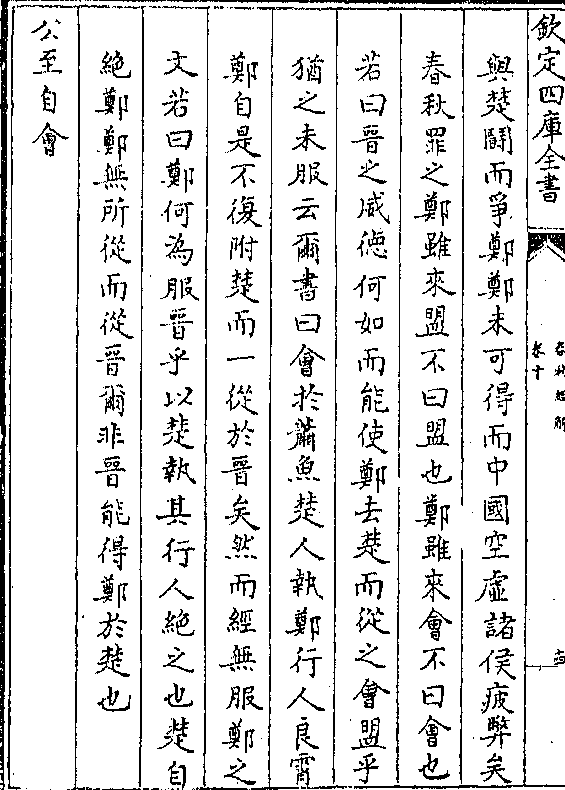 欽定四庫全書
春秋經解
卷十
與楚鬭而爭鄭鄭未可得而中國空虛諸侯疲弊矣
春秋罪之鄭雖來盟不曰盟也鄭雖來會不曰會也
若曰晉之威徳何如而能使鄭去楚而從之會盟乎
猶之未服云爾書曰會於蕭魚楚人執鄭行人良霄
鄭自是不復附楚而一從於晉矣然而經無服鄭之
文若曰鄭何為服晉乎以楚執其行人絶之也楚自
絶鄭鄭無所從而從晉爾非晉能得鄭於楚也
公至自會